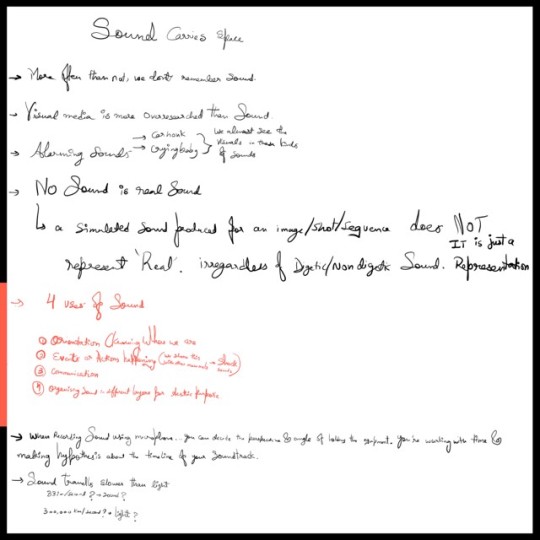 Sound Carries Space
→ More often than not, we dont remember sound.
→ Visual media is more overresearched than Sound
→ Alarming Sounds → Car honk → Crying baby } we almost see the visuals in these kinds of sounds
→ No Sound is real Sound
↳ a simulated sound produced for an image/shot/sequence does NOT
represent 'Real'. irregardless of Digetic/Non digetic Sound. IT is just a Representation
→ 4 uses of Sound
① Orientation Claiming Where we are
② Events → Action happening (we share this with other mammals →
③ Communication
④ Organising Sound in different layers for
→ When Recording Sound using microphone.. you can decide the & angle of the equipment. You're working with time &
making hypothesis about the timeline of your Soundtrack.
→ Sound travels slower than light
/second? → Sound?
300,000 km/second? → light?